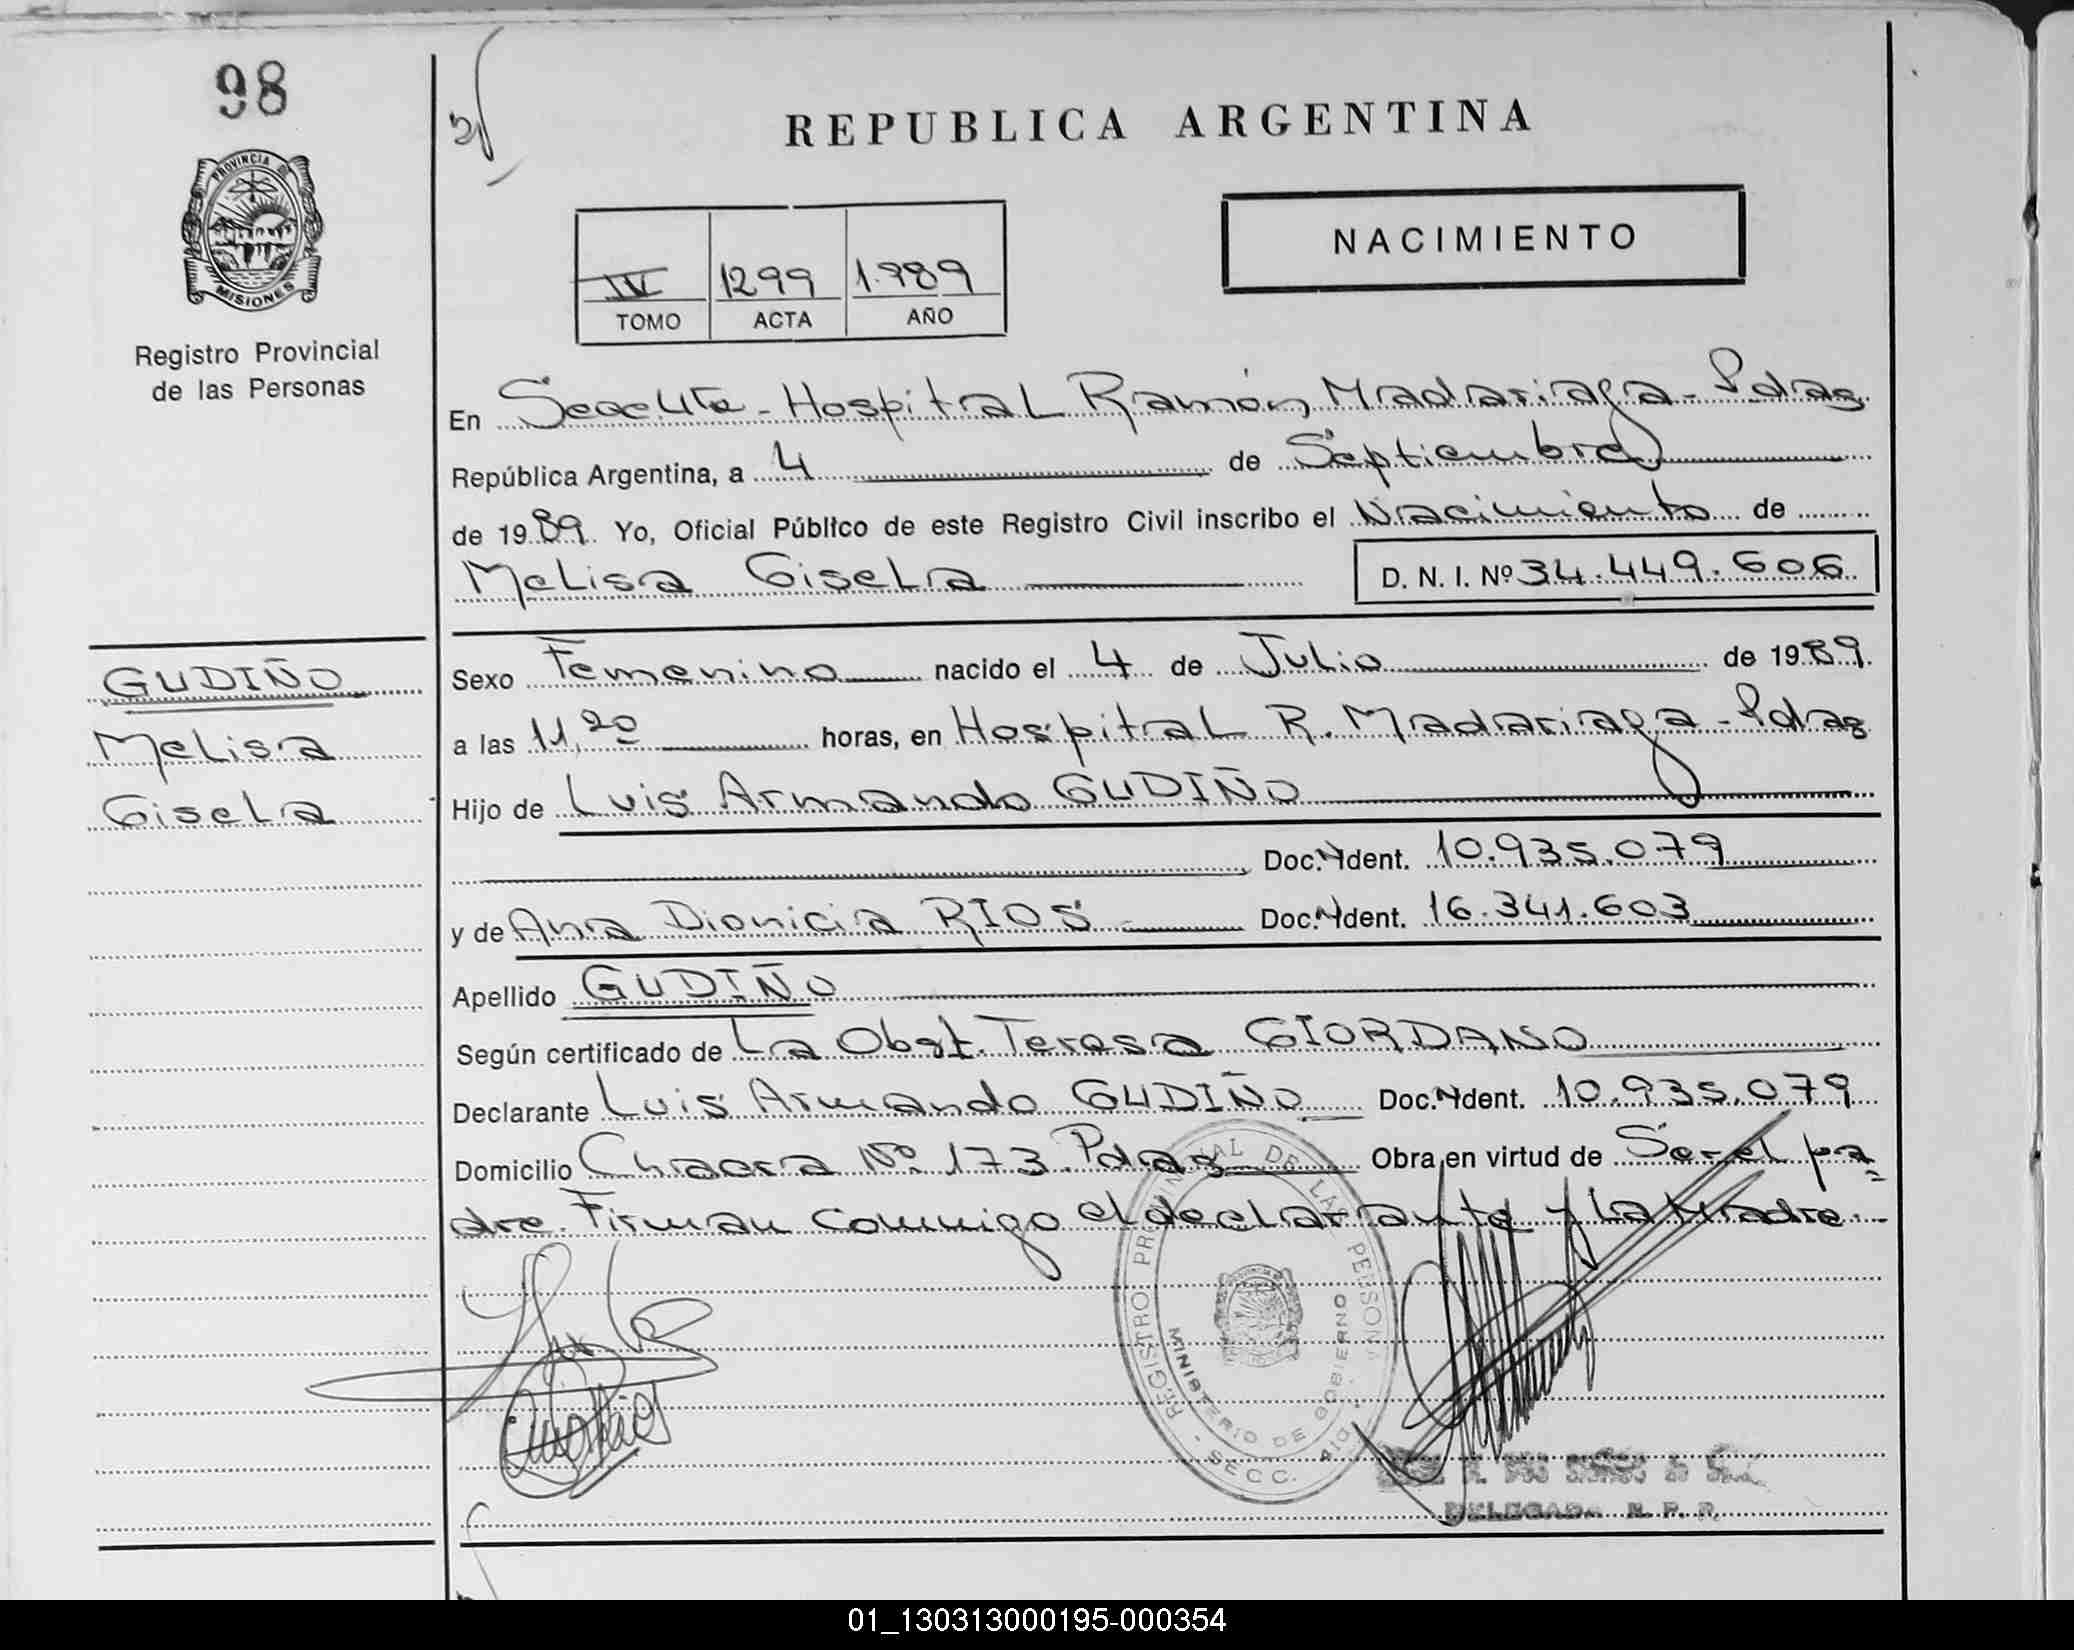 98
PROVINCIA DE
MISIONES
Registro Provincial
de las Personas
REPUBLICA ARGENTINA
NACIMIENTO
IV 1299 1.989
TOMO ACTA AÑO
En Hospital Ramón Madariaga - Pdas
República Argentina, a 4 de Septiembre
de 1989. Yo, Oficial Público de este Registro Civil inscribo el Nacimiento de
Melisa Gisela D. N. I. Nº 34.449.606
GUDIÑO
Melisa
Gisela
Sexo Femenino nacido el 4 de Julio de 1989.
a las 11,20 horas, en Hospital R. Madariaga - Pdas
Hijo de Luis Armando GUDIÑO
Doc. Ident. 10.935.079
y de Ana Dionicia RIOS Doc. Ident. 16.341.603
Apellido GUDIÑO
Según certificado de La Obst. Teresa GIORDANO
Declarante Luis Armando GUDIÑO Doc. Ident. 10.935.079
Domicilio Chacra Nº 173 Pdas Obra en virtud de Ser el pa
dre. Firman conmigo el declarante y la Madre.
REGISTRO PROVINCIAL DE LAS PERSONAS
MINISTERIO DE GOBIERNO
SECC.
DELEGADA R. P. P.
01_130313000195-000354